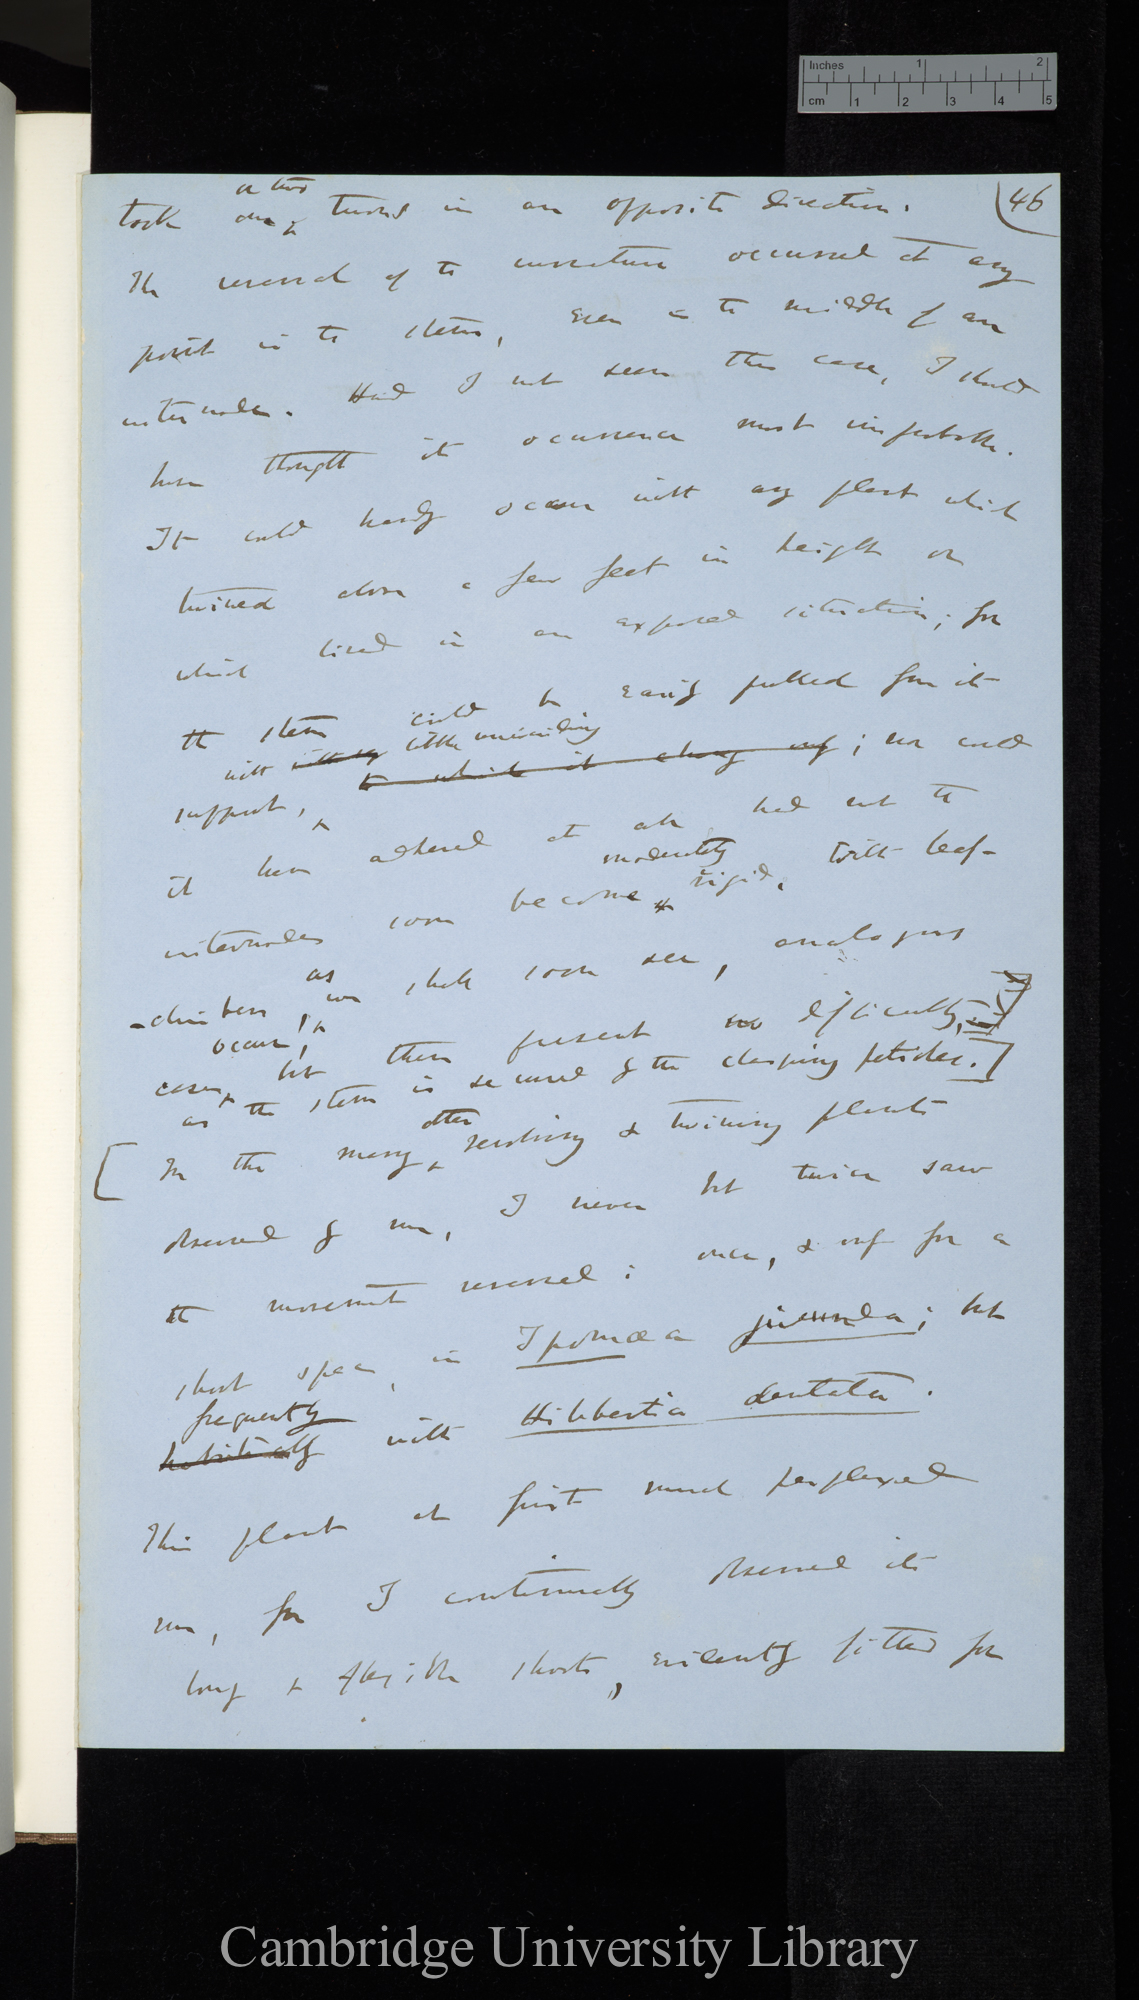 Inches 1 2
cm 1 2 3 4 5
46
or two
took one turns in an opposite direction.
The reversal of the curvature occurred at any
point in the stem, even in the middle of an
internode. Had I not seen this case, I should
have thought its occurrence most improbable.
It could hardly occur with any plant which
twined above a few feet in height or
which lived in an exposed situation; for
the stem could be easily pulled from its
with little unwinding
support, to which it clung only; nor could
it have adhered at all had not the
moderately
internodes soon become rigid. With leaf-
as
-climbers, we shall soon see, analogous
occur,
cases, but these present no difficulty,
as the stem is secured by the clasping petioles.]
other
[In the many revolving & twining plants
observed by me, I never but twice saw
the movement reversed: once, & only for a
short space, in Ipomœa jucunda; but
frequently
habitually with Hibbertia dentata.
This plant at first much perplexed
me, for I continually observed its
long & flexible shoots, evidently fitted for
Cambridge University Library